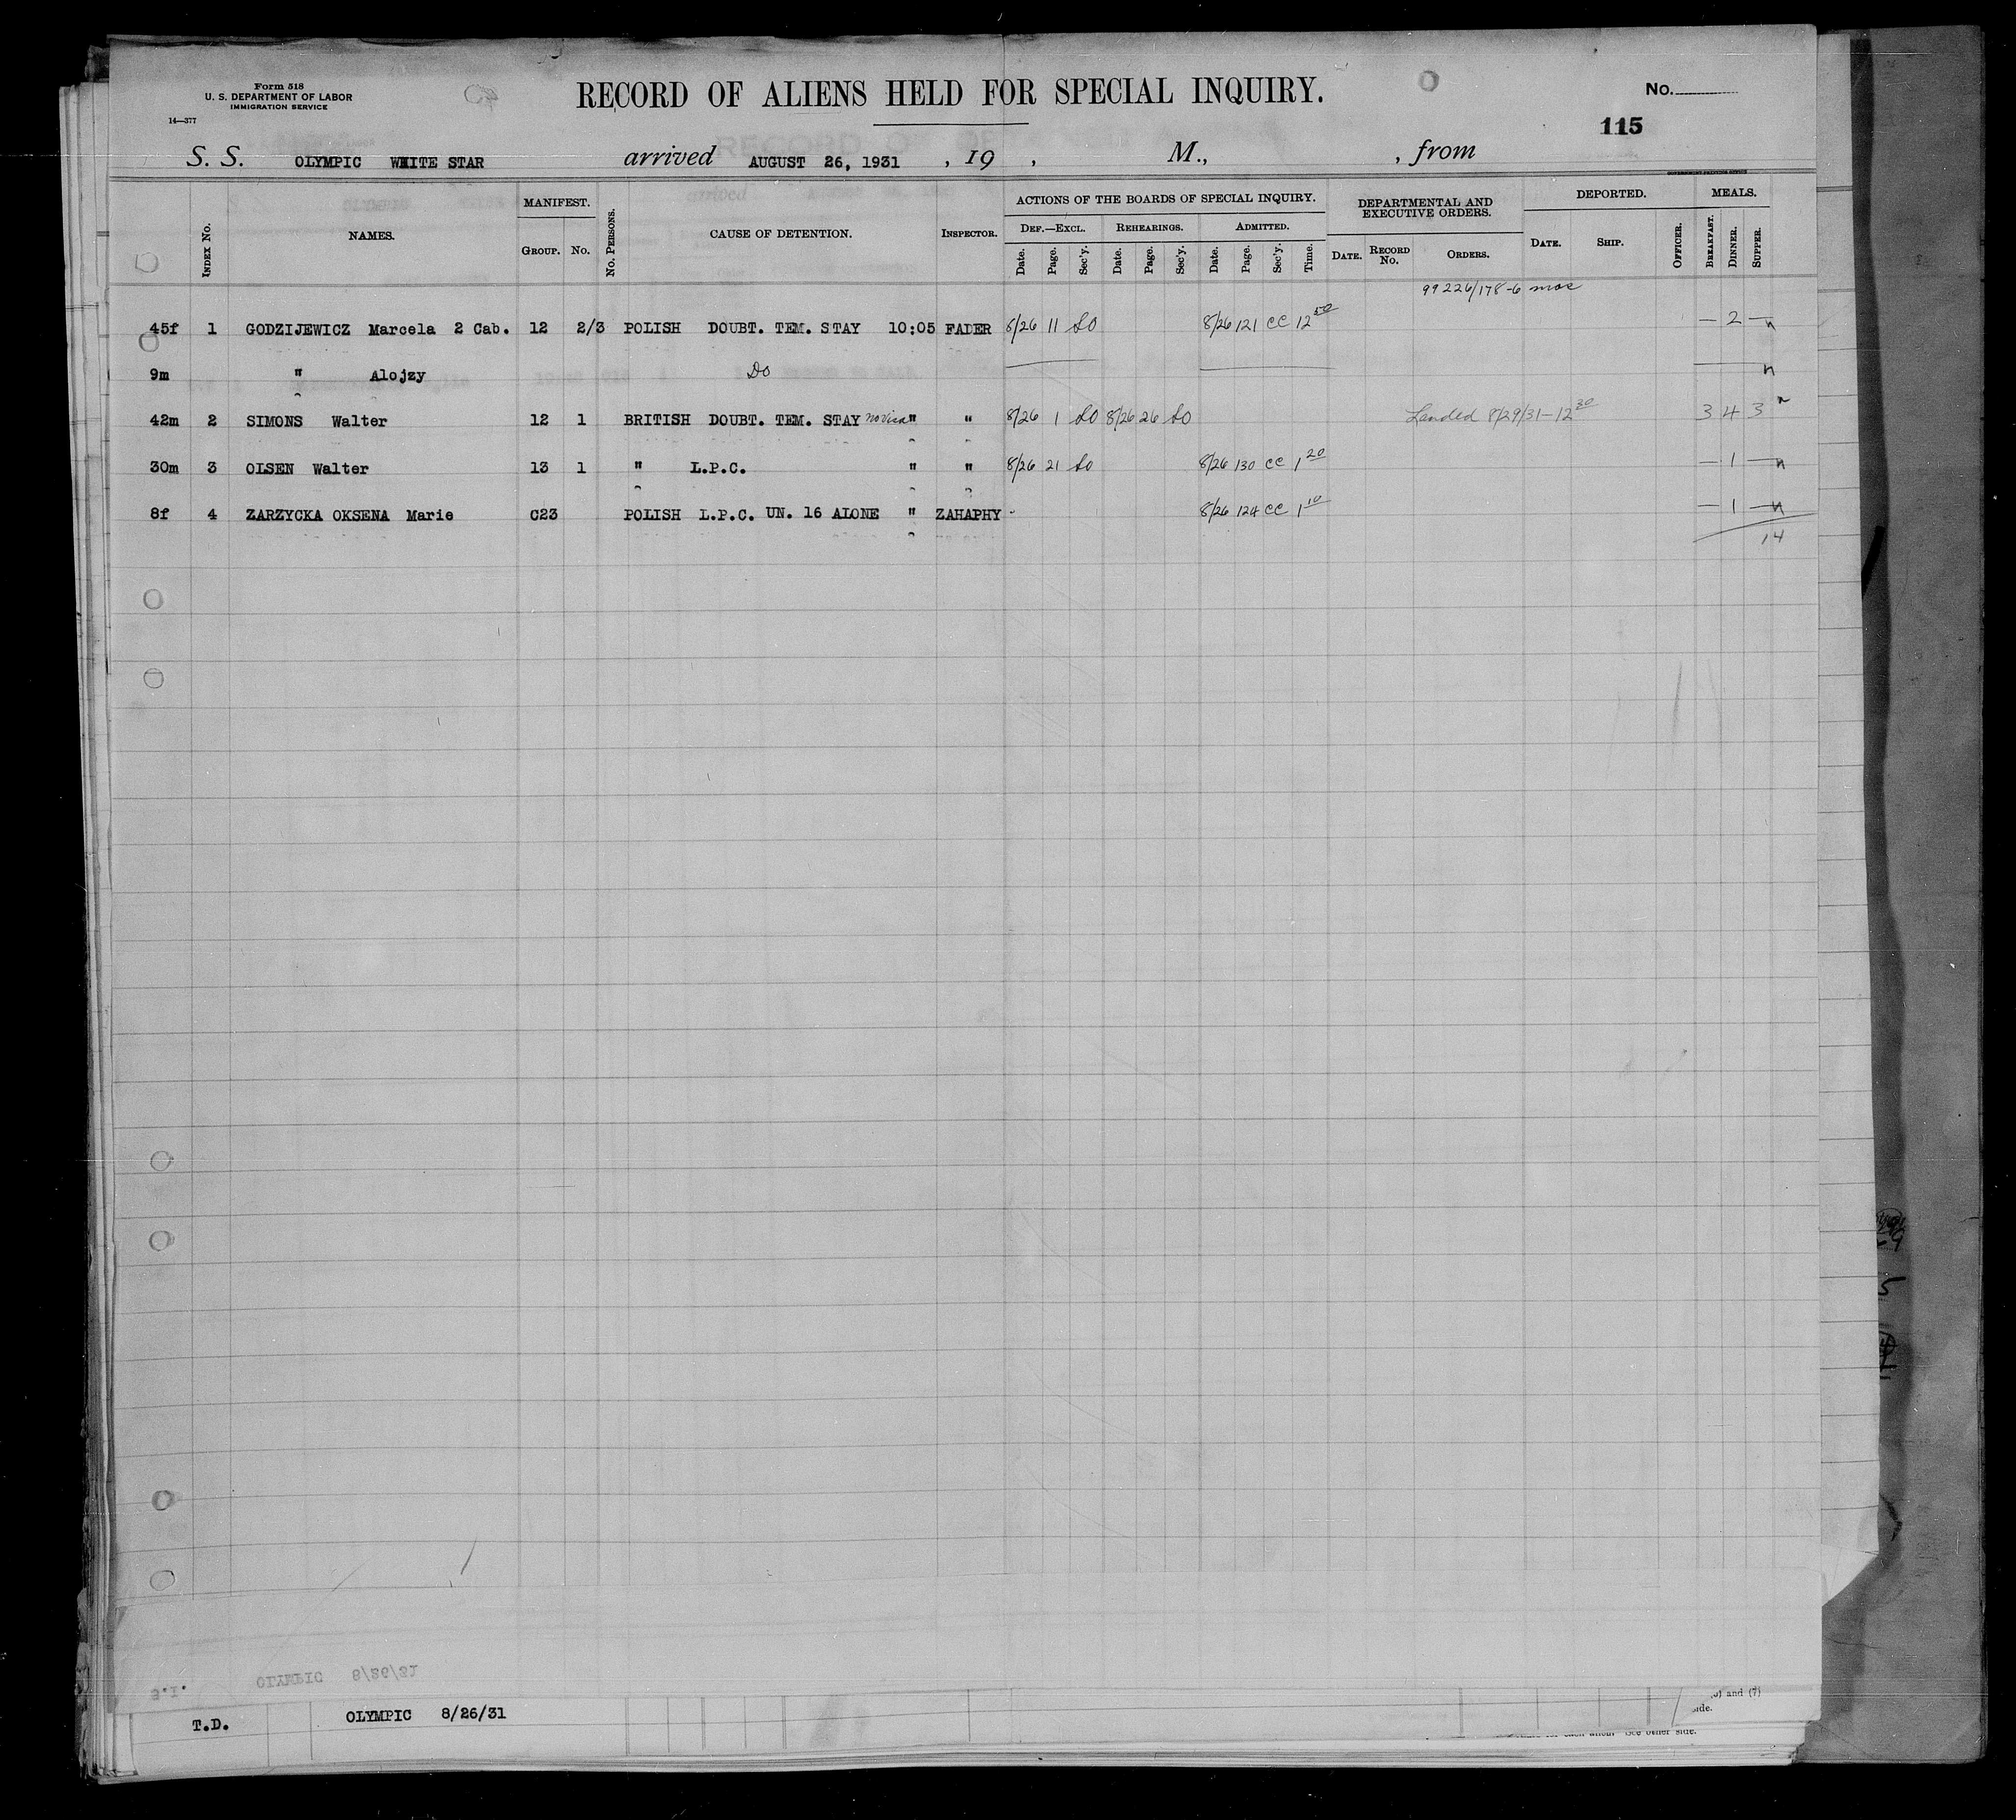 Form 518
U. S. DEPARTMENT OF LABOR
IMMIGRATION SERVICE
14—377
RECORD OF ALIENS HELD FOR SPECIAL INQUIRY.
No.
115
S. S. OLYMPIC WHITE STAR arrived AUGUST 26, 1931 , 19 , M., , from
INDEX No. NAMES. MANIFEST. GROUP. No. No. PERSONS. CAUSE OF DETENTION. INSPECTOR. ACTIONS OF THE BOARDS OF SPECIAL INQUIRY. DEF.—EXCL. Date. Page. Sec'y. REHEARINGS. Date. Page. Sec'y. ADMITTED. Date. Page. Sec'y. Time. DEPARTMENTAL AND EXECUTIVE ORDERS. DATE. RECORD No. ORDERS. DEPORTED. DATE. SHIP. OFFICER. MEALS. BREAKFAST. DINNER. SUPPER.
99226/178-6 mos
45f 1 GODZIJEWICZ Marcela 2 Cab. 12 2/3 POLISH DOUBT. TEM. STAY 10:05 FADER 8/26 11 SO 8/26 121 CC 12 — 2 — n
9m " Alojzy Do n
42m 2 SIMONS Walter 12 1 BRITISH DOUBT. TEM. STAY no visa " " 8/26 1 SO 8/26 26 SO Landed 8/29/31—12 30 3 4 3 n
30m 3 OLSEN Walter 13 1 " L.P.C. " " 8/26 21 SO 8/26 130 CC 1 20 — 1 — n
8f 4 ZARZYCKA OKSENA Marie C23 POLISH L.P.C. UN. 16 ALONE " ZAHAPHY 8/26 124 CC 1 10 — 1 — n
14
S.I. OLYMPIC 8/26/31
T.D. OLYMPIC 8/26/31
and (7)
side.
See other side.